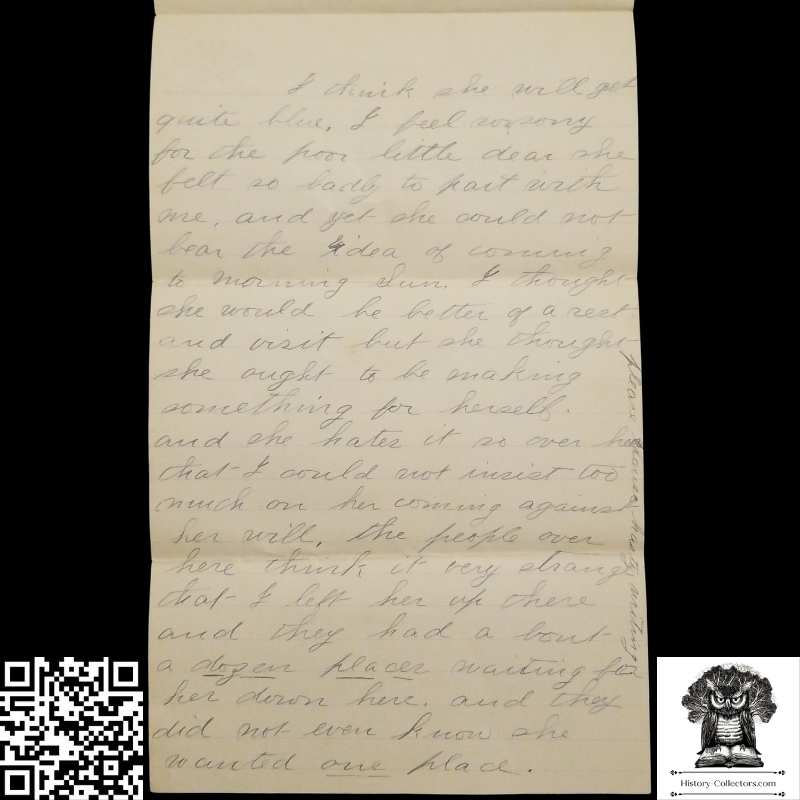 I think she will get
quite blue, I feel so sorry
for the poor little dear she
felt so badly to part with
me, and yet she could not
bear the idea of coming
to morning Sun. I thought
she would be better of a rest
and visit but she thought
she ought to be making
something for herself.
and she hates it so over here
that I could not insist too
much on her coming against
her will, the people over
here think it very strange
that I left her up there
and they had a bout
a dozen places waiting for
her down here. and they
did not even know she
wanted one place.
please excuse hasty writing
History-Collectors.com